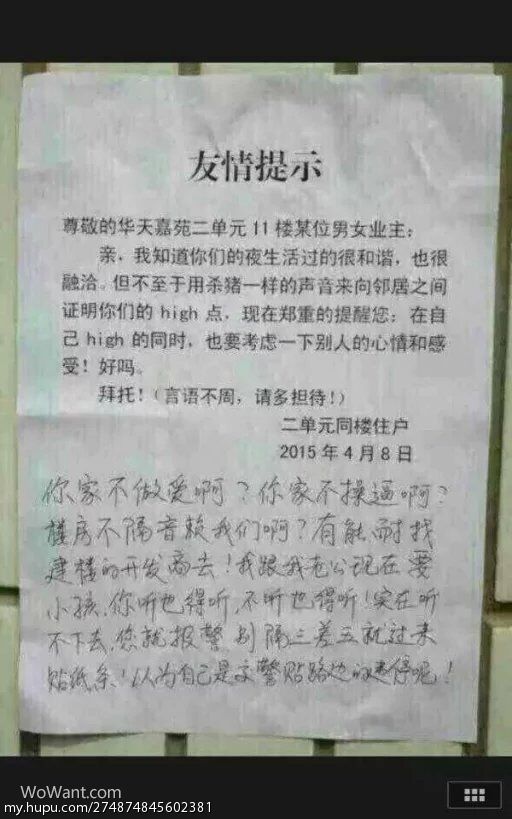 友情提示
尊敬的华天嘉苑二单元11楼某位男女业主：
亲，我知道你们的夜生活过的很和谐，也很
融洽。但不至于用杀猪一样的声音来向邻居之间
证明你们的high点，现在郑重的提醒您：在自
己high的同时，也要考虑一下别人的心情和感
受！好吗。
拜托！（言语不周，请多担待！）
二单元同楼住户
2015年4月8日
你家不做爱啊？你家不操逼啊？
楼房不隔音赖我们啊？有能耐找
建楼的开发商去！我跟我老公现在要
小孩，你听也得听，不听也得听！实在听
不下去，您就报警 别隔三差五就过来
贴纸条！以为自己是交警贴路边的违停呢！
WoWant.com
my.hupu.com/274874845602381